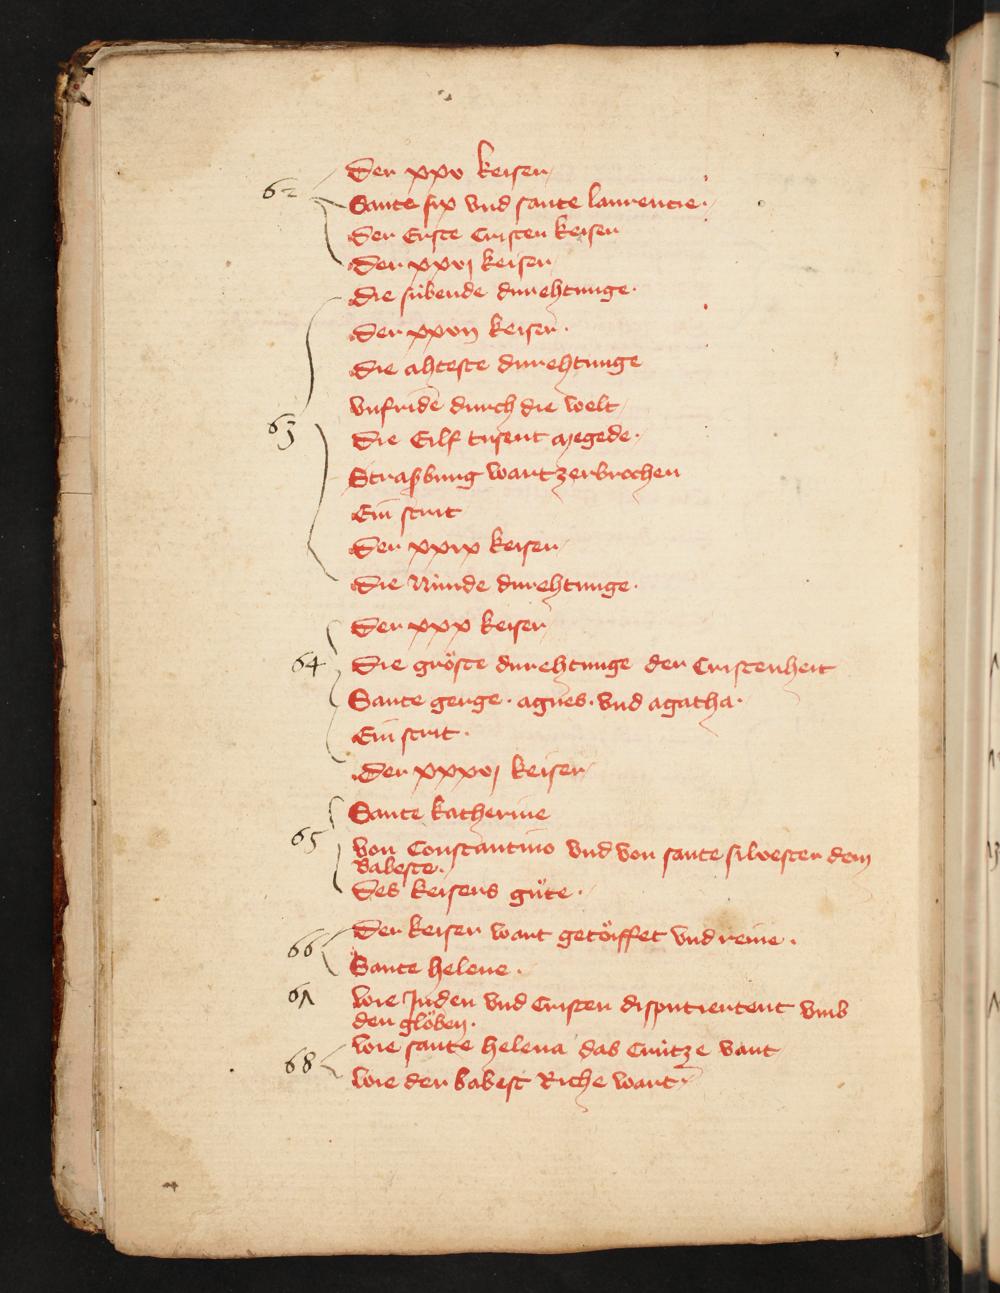 Der xxv keiser
62
Sante six vnd sante laurencie.
Der Erste Cristen keiser
Der xxvj keiser
die sübende durehtunge.
Der xxvij keiser.
die ahteste durehtunge
vnfride durch die welt
63
die Eilf tusent megede.
Straßburg wart zerbrochen
Ein strit
Der xxix keiser
die Nünde durehtunge.
Der xxx keiser
64
Die gröste durehtunge der Cristenheit
Sante gerge. agnes. vnd agatha.
Ein strit.
Der xxxvj keiser
Sante katherine
65
von Constantino vnd von sante siluester dem
babeste.
Des keisers güte.
Der keiser wart getöiffet vnd reine.
66
Sante helene.
67
wie Juden vnd Cristen disputiertent vmb
den glöben.
wie sante helena das Crütze vant
68
wie der babest Riche wart